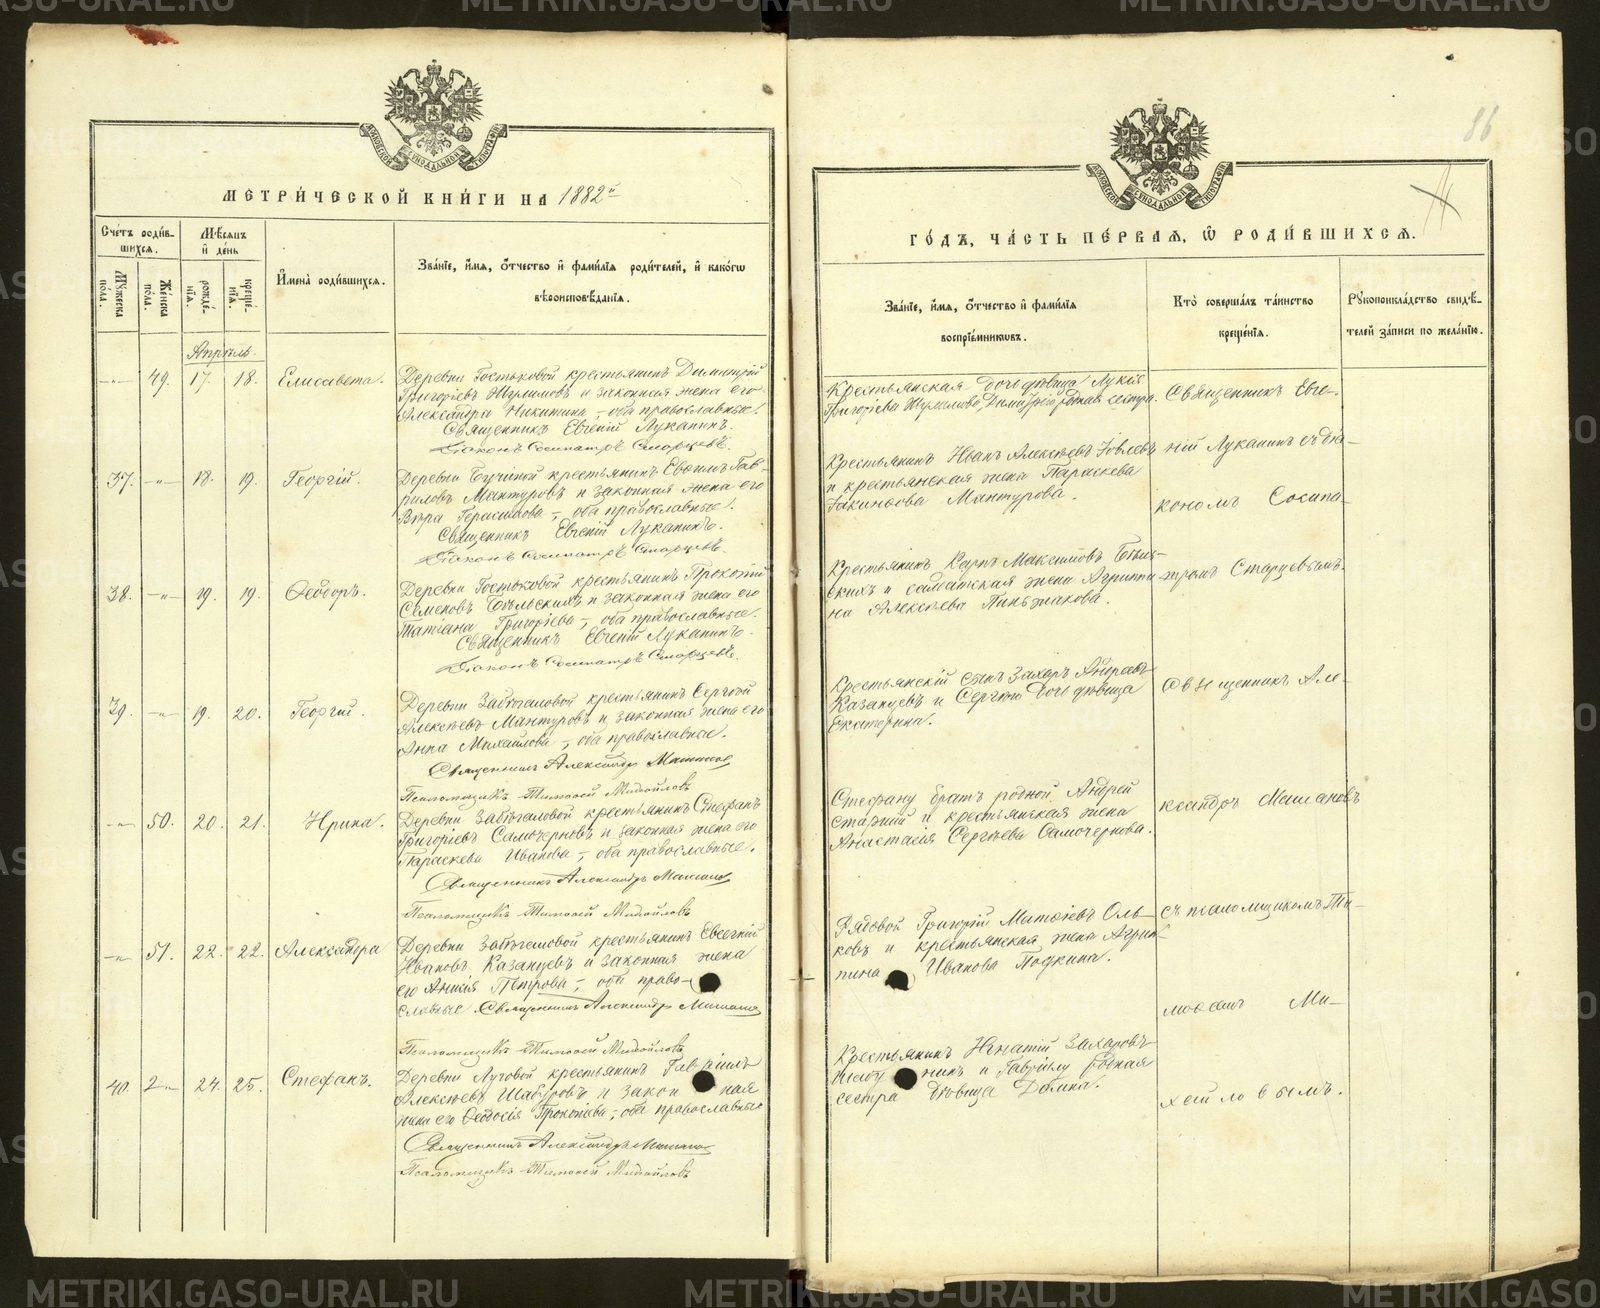 METRIKI.GASO-URAL.RU
МЕТРИ́ЧЕСКОЙ КНИ́ГИ НА 1882й
Сче́тъ роди́в-
шихся.
Мѣсяцъ
и҆ де́нь
Му́жеска по́ла.
Же́нска по́ла.
рожде́-
нїя.
креще́-
нїя.
И҆мена̀ роди́вшихся.
Зва́нїе, и҆́мя, ѻ҆́тчество и҆ фами́лїя роди́телей, и҆ како́гѡ
вѣроисповѣ́данїя.
Апрѣль.
49. 17. 18. Елисавета.
Деревни Гостьковой крестьянинъ Димитрій
Григоріевъ Шулимовъ и законная жена его
Александра Никитина, оба православные.
Священникъ Евгеній Луканинъ.
Діаконъ Сосипатръ Старцевъ.
37. 18. 19. Георгій.
крестьянинъ Гав-
риловъ Мантуровъ и законная жена его
Вѣра Герасимова, оба православные.
Священникъ Евгеній Луканинъ.
Діаконъ Сосипатръ Старцевъ.
38. 19. 19. Ѳеодоръ.
Деревни Гостьковой крестьянинъ Прокопій
Семеновъ Бѣльскихъ и законная жена его
Татіана Григоріева, оба православные.
Священникъ Евгеній Луканинъ.
Діаконъ Сосипатръ Старцевъ.
39. 19. 20. Георгій.
Деревни Забѣгаловой крестьянинъ Сергѣй
Алексѣевъ Мантуровъ и законная жена его
Анна Михайлова, оба православные.
Священникъ Александръ
Псаломщикъ Тимоѳей Михайловъ
50. 20. 21. Ирина.
Деревни Забѣгаловой крестьянинъ Стефанъ
Григоріевъ Самочерновъ и законная жена его
Параскева Иванова, оба православные.
Священникъ Александръ
Псаломщикъ Тимоѳей Михайловъ
51. 22. 22. Александра
Деревни Забѣгаловой крестьянинъ Евсегній
Ивановъ Казанцевъ и законная жена
его Анисія Петрова, оба право-
славные. Священникъ Александръ
Псаломщикъ Тимоѳей Михайловъ
40. 24. 25. Стефанъ.
Деревни Луговой крестьянинъ Гавріилъ
Алексѣевъ Шабуровъ и закон ная
жена его Ѳеодосія Прокопіева, оба православные
Священникъ Александръ
Псаломщикъ Тимоѳей Михайловъ
86
ГО́ДЪ, ЧА́СТЬ ПЕ́РВАЯ, Ѡ҆ РОДИ́ВШИХСЯ.
Зва́нїе, и҆́мя, ѻ҆́тчество и҆ фами́лїя
воспрїе́мниковъ.
Кто̀ соверша́лъ та́инство
креще́нїя.
Рꙋкоприкла́дство свидѣ́-
телей за́писи по жела́нїю.
Крестьянская дочь дѣвица Лукія
Григоріева Шулимова, Димитрію родная сестра.
Крестьянинъ Иванъ Алексѣевъ Іовлевъ
и крестьянская жена Параскева
Іакинѳова Мантурова.
Крестьянинъ Карпъ Максимовъ Бѣль-
скихъ и солдатская жена Агриппи-
на Алексѣева Пиньжакова.
Крестьянскій сынъ Захаръ Андреевъ
Казанцевъ и Сергѣю дочь дѣвица
Екатерина.
Стефану братъ родной Андрей
старшій и крестьянская жена
Анастасія Сергѣева Самочернова.
Рядовой Григорій Матѳіевъ Оль-
ковъ и крестьянская жена Агрип-
пина Иванова
Крестьянинъ Игнатій Захаровъ
и Гавріилу родная
сестра дѣвица Домна.
Священникъ Евге-
ній Луканинъ съ діа-
кономъ Сосипа-
тромъ Старцевымъ.
Священникъ Але-
ксандръ
съ псаломщикомъ Ти-
моѳеемъ Ми-
хайловымъ.